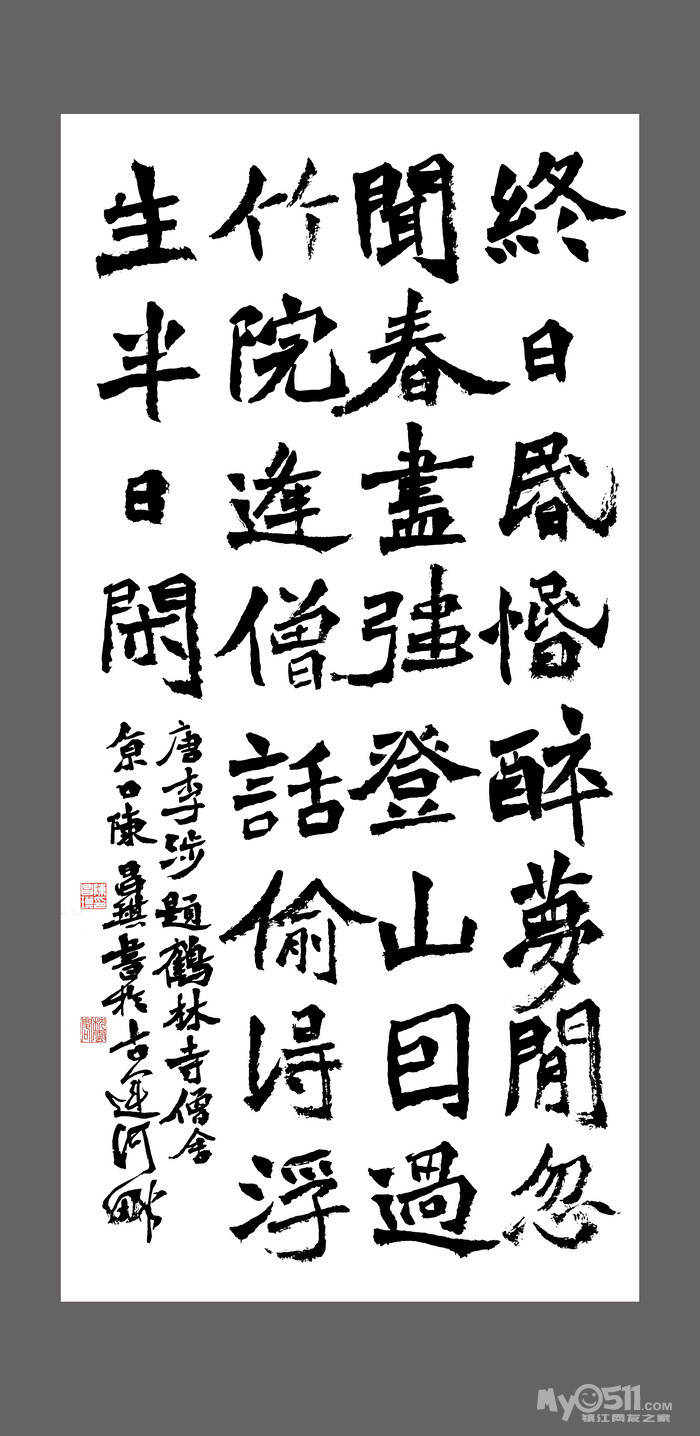 終日昬惽醉夢閒忽
聞春盡強登山回過
竹院逢僧話偷得浮
生半日閑
唐李涉題鶴林寺僧舍
京口陳昌琪書於古運河畔
My0511.COM
镇江网友之家